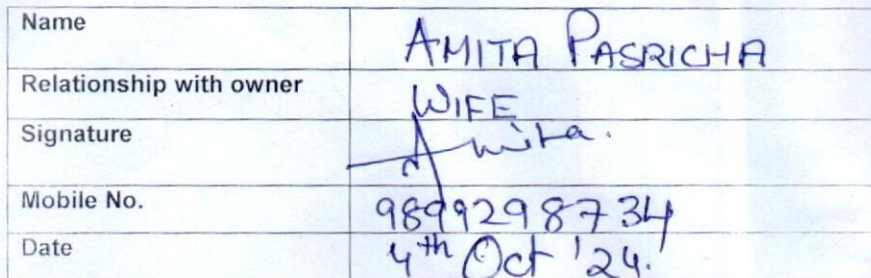 Name AMITA PASRICHA
Relationship with owner WIFE
Signature Amita.
Mobile No. 9899298734
Date 4th Oct '24.